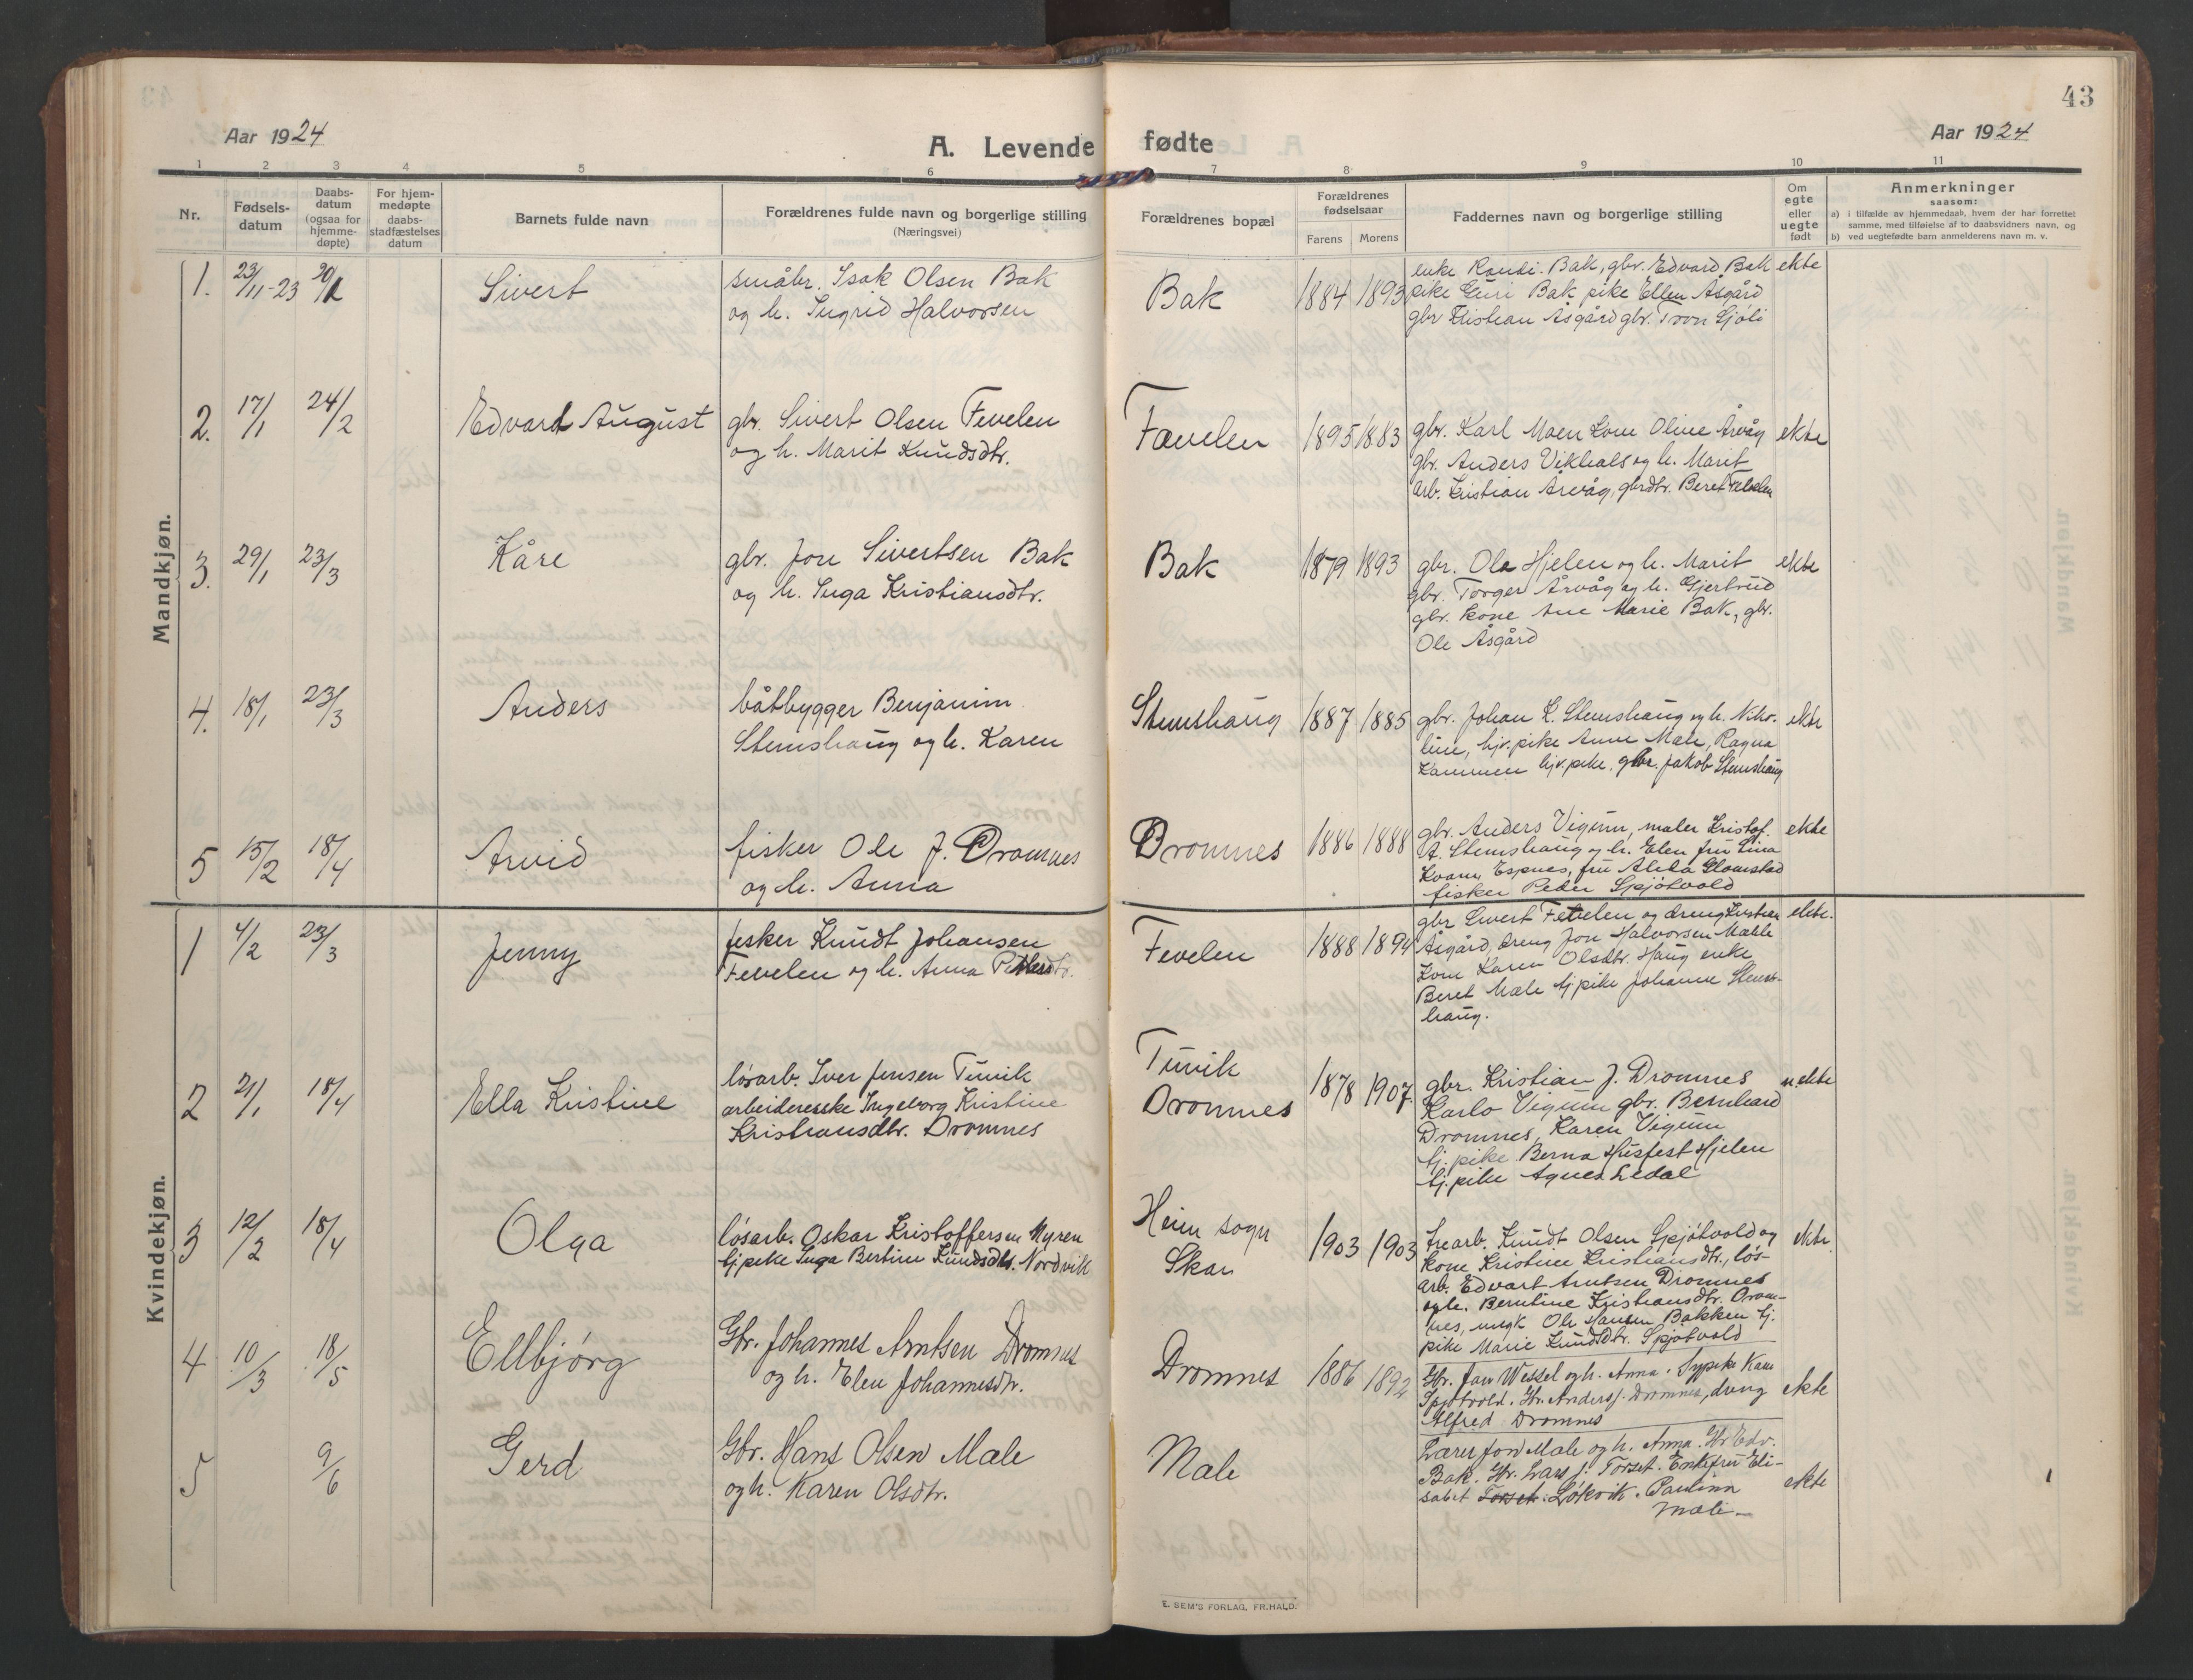 43
Aar 1924
A. Levende fødte
Aar 1924
1 2 3 4 5 6 7 8 9 10 11
Nr.
Fødsels-
datum
Daabs-
datum
(ogsaa for
hjemme-
døpte)
For hjem-
medøpte
daabs-
stadfæstelses
datum
Barnets fulde navn
Forældrenes fulde navn og borgerlige stilling
(Næringsvei)
Forældrenes bopæl
Forældrenes
fødselsaar
Farens Morens
Faddernes navn og borgerlige stilling
Om
egte
eller
uegte
født
Anmerkninger
saasom:
a) i tilfælde av hjemmedaab, hvem der har forrettet
samme, med tilføielse af to daabsvidners navn, og
b) ved uegtefødte barn anmelderens navn m. v.
Mandkjøn.
1. 23/11-23
Sivert
småbr. Isak Olsen Bak
og h. Ingrid Halvorsen
Bak
1884 1893
enke Randi Bak, gbr. Edvard Bak
pike Guri Bak pike Ellen Åsgård
gbr Kristian Åsgård gbr. Tron Gjøli
ekte
2. 17/1 24/2
Edvard August
gbr. Sivert Olsen Fevelen
og h. Marit Knudsdtr.
Fævelen
1895 1883
gbr. Karl Moen Kone Oline Årvåg
gbr. Anders Vikhals og h. Marit
arb. Kristian Årvåg, gbrdtr. Beret Fevelen
ekte
3. 29/1 23/3
Kåre
gbr. Jon Sivertsen Bak
og h. Inga Kristiansdtr.
Bak
1879 1893
gbr. Ola Hjelen og h. Marit
gbr. Torger Årvåg og h. Gjertrud
gbr. kone Ane Marie Bak, gbr.
Ole Åsgård
ekte
4. 18/1 23/3
Anders
båtbygger Benjamin
Stemshaug og h. Karen
Stemshaug
1887 1885
gbr. Johan K. Stemshaug og h. Niko-
line, hjv. pike Anne Mæle, Ragna
Kammen hjv. pike, gbr. Jakob Stemshaug
ekte
5 15/2 18/4
Arvid
fisker Ole J. Dromnes
og h. Anna
Dromnes
1886 1888
gbr. Anders Vigum, maler Kristof.
A. Stemshaug og h. Elen fru Lina
Kvam, Espnes, fru Alida Glomstad
fisker Peder Spjøtvold
ekte
Kvindekjøn.
1 4/2 23/3
Jenny
fisker Knudt Johansen
Fevelen og h. Anna
Fevelen
1888 1894
gbr Sivert Fevelen og dreng Kristian
Åsgård, dreng Jon Halvorsen Mæhle
Kone Karen Olsdtr. Haug enke
Beret Mæle tj pike Johanna Stems-
haug.
ekte.
2 21/1 18/4
Ella Kristine
løsarb. Iver Jensen Tuvik
arbeiderske Ingeborg Kristine
Kristiansdtr. Dromnes
Tuvik
Dromnes
1878 1907.
gbr. Kristian J. Dromnes
Karlo Vigum gbr. Bernhard
Dromnes, Karen Vigum
tj. pike Berna Husfest Hjelen
tj. pike Agnes Ledal
uekte
3 12/2 18/4
Olga
løsarb. Oskar Kristoffersen Myren
tj. pike Inga Bertine Knudsdtr. Nordvik
Heim sogn
Skar
1903 1903
trearb. Knudt Olsen Spjøtvold og
Kone Kristine Kristiansdtr., løs-
arb. Edvart Arntsen Dromnes
og h. Berntine Kristiansdtr. Drom-
nes, ungk Ole Hansen Bakken tj.
pike Marie Knudsdtr. Spjøtvold
4 10/3 18/5
Ellbjørg
Gbr. Johannes Arntsen Dromnes
og h. Elen Johannesdtr.
Dromnes
1886 1892
Gbr. Jon Wessel og h. Anna. Sypike Kam
Spjøtvold. Gbr. Anders J. Dromnes, dreng
Alfred Dromnes
ekte
5 9/6
Gerd
Gbr. Hans Olsen Mæle
og h. Karen Olsdtr.
Mæle
Lærer Jon Mæle og h. Anna. Gbr Edv.
Bak. Gbr. Lars J. Torset. Enkefru Eli-
sabet Torset. Løkvik. Paulina
Mæle
ekte
E. SEM'S FORLAG, FR.HALD.